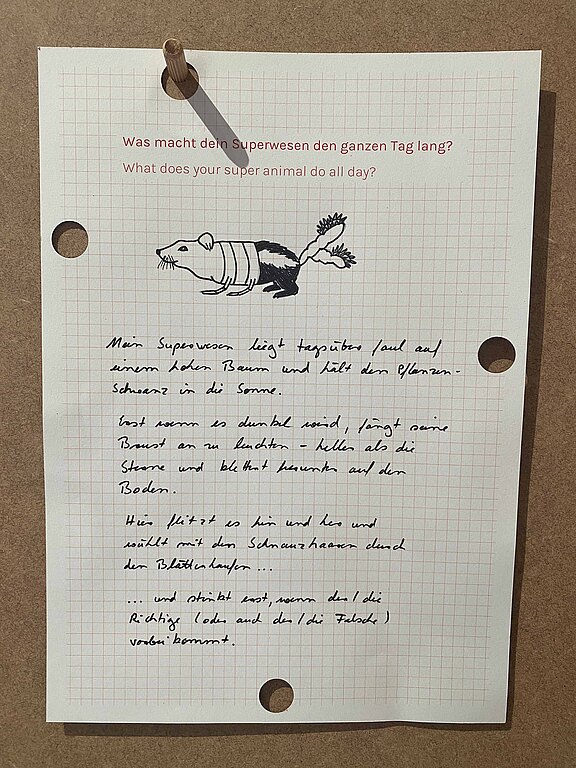 Was macht dein Superwesen den ganzen Tag lang?
What does your super animal do all day?
Mein Superwesen liegt tagsüber faul auf
einem hohen Baum und hält den Pflanzen-
Schwanz in die Sonne.
Erst wenn es dunkel wird, fängt seine
Brust an zu leuchten – heller als die
Sterne und klettert herunter auf den
Boden.
Hier flitzt es hin und her und
wühlt mit den Schnauzhaaren durch
den Blätterhaufen ...
... und stinkt erst, wenn der/die
Richtige (oder auch der/die Falsche)
vorbei kommt.